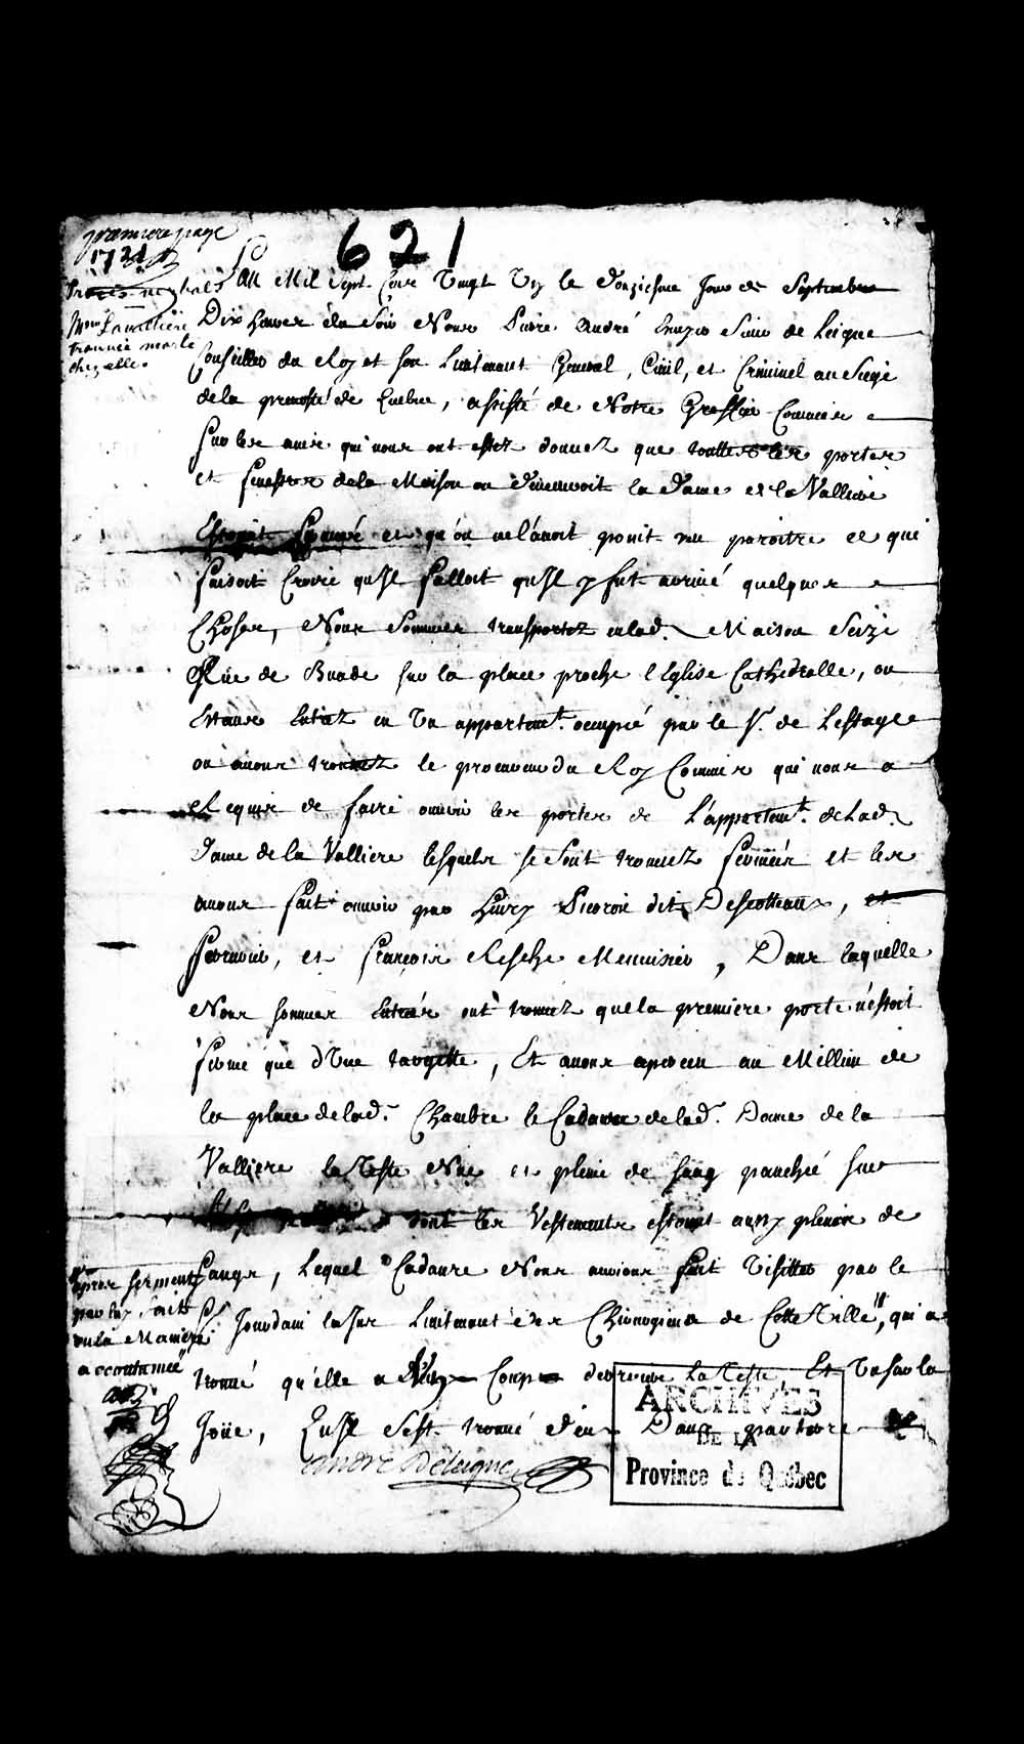 premiere page
621
1721
Procès verbal
Mme Lavallière
trouvée morte
chez elle.
L'an Mil Sept Cens Vingt Un le Douziesme Jour de Septembre
Dix heures du Soir Nous Pierre André Escuyer Sieur de Leigne
Conseiller du Roy et Son Lieutenant General, Civil, et Criminel au Siege
de la prevosté de Quebec, assisté de Notre Greffier Commis
Sur les avis qui nous ont estez donnez que touttes les portes
et fenestres de la Maison ou demeuroit la Dame de la Valliere
Estoient fermé et qu'on ne l'avoit point veu paroitre ce qui
faisoit Croire qu'Il falloit qu'Il y fut arrivé quelques
Choses, Nous Sommes transportez en lad. Maison Seize
Rüe de Buade sur la place proche l'Eglise Cathedralle, ou
Estans Entrez en Un appartemt. occupé par le Sr. de Lestage
ou avons trouvez le procureur du Roy Commis qui nous a
Requis de faire ouvrir les portes de L'appartemt. de Lad.
Dame de la Valliere lesquels se sont trouvez fermées et les
avons fait ouvrir par Henry Picoron dit Descotteaux, et
Serrurier, et françois Resche Menuisier, Dans laquelle
Nous sommes Entrés ont trouvez que la premiere porte n'estoit
fermé que d'Une targette, Et avons aperceu au Millieu de
la place de lad. Chambre le Cadavre de lad. Dame de la
Valliere la Teste Nue et pleine de sang panchée sur
dont les Vestements estoient aussy pleins de
Sangs, Lequel Cadavre Nous avions fait Visitter par le
Sr Jourdain lajus Lieutenant des Chirurgiens de Cette Ville, qui a
apres serment
par luy fait
en la Maniere
accoutumée
trouvé qu'elle a Coups derriere la Teste Et Un sur la
Joüe, Qu'Il s'est trouvé deux Dans par terre
André Deleigne
ARCHIVES
DE LA
Province de Québec